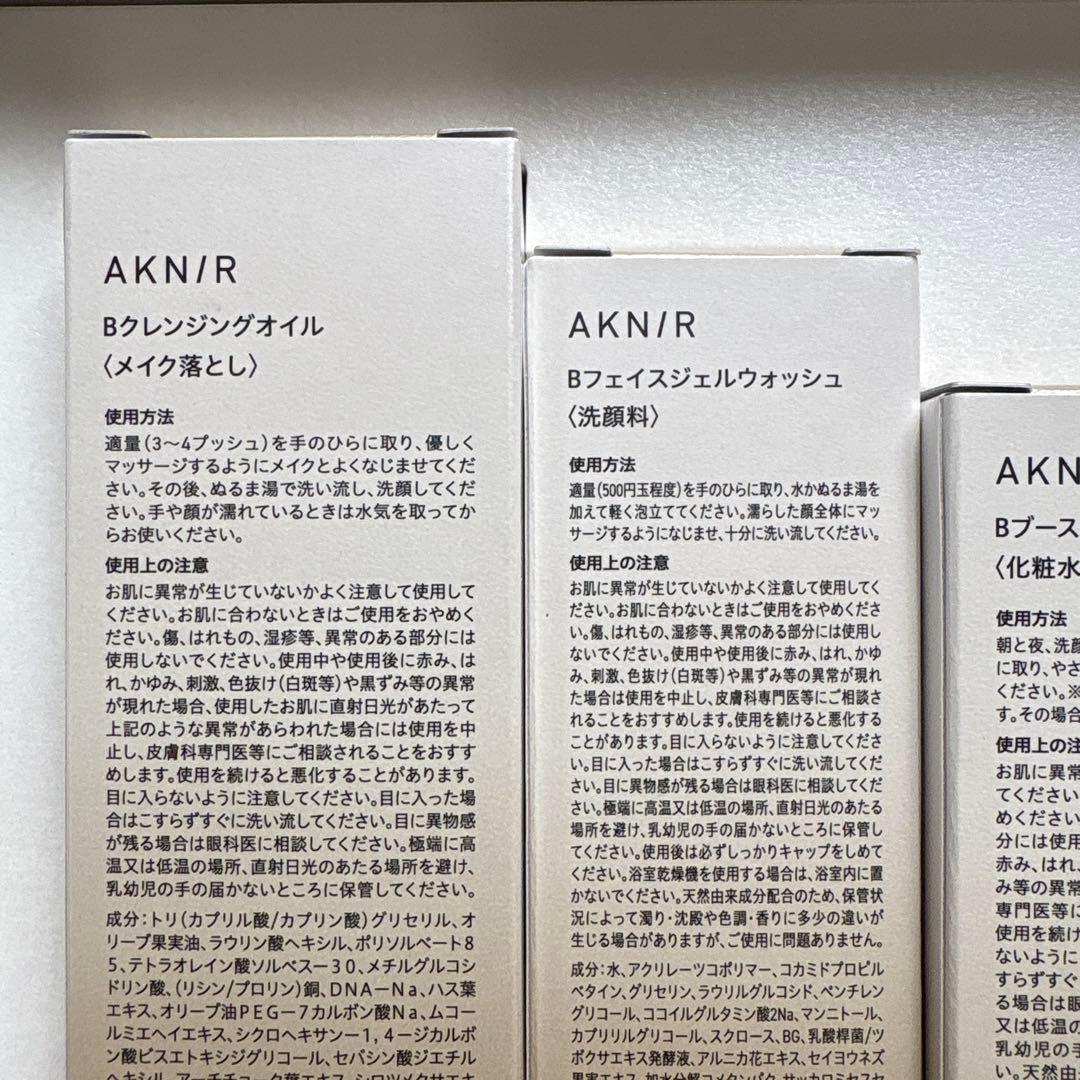 AKN/R
Bクレンジングオイル
〈メイク落とし〉
使用方法
適量(3〜4プッシュ)を手のひらに取り、優しく
マッサージするようにメイクとよくなじませてくだ
さい。その後、ぬるま湯で洗い流し、洗顔してくだ
さい。手や顔が濡れているときは水気を取ってか
らお使いください。
使用上の注意
お肌に異常が生じていないかよく注意して使用して
ください。お肌に合わないときはご使用をおやめく
ださい。傷、はれもの、湿疹等、異常のある部分には
使用しないでください。使用中や使用後に赤み、は
れ、かゆみ、刺激、色抜け(白斑等)や黒ずみ等の異常
が現れた場合、使用したお肌に直射日光があたって
上記のような異常があらわれた場合には使用を中
止し、皮膚科専門医等にご相談されることをおすす
めします。使用を続けると悪化することがあります。
目に入らないように注意してください。目に入った場
合はこすらずすぐに洗い流してください。目に異物感
が残る場合は眼科医に相談してください。極端に高
温又は低温の場所、直射日光のあたる場所を避け、
乳幼児の手の届かないところに保管してください。
成分:トリ(カプリル酸/カプリン酸)グリセリル、オ
リーブ果実油、ラウリン酸ヘキシル、ポリソルベート8
5、テトラオレイン酸ソルベス―30、メチルグルコシ
ドリン酸、(リシン/プロリン)銅、DNA―Na、ハス葉
エキス、オリーブ油PEG―7カルボン酸Na、ムコー
ルミエヘイエキス、シクロヘキサン―1,4―ジカルボ
ン酸ビスエトキシジグリコール、セバシン酸ジエチル
ヘキシル、アーチチョーク葉エキス、シロツメクサエキ
AKN/R
Bフェイスジェルウォッシュ
〈洗顔料〉
使用方法
適量(500円玉程度)を手のひらに取り、水かぬるま湯を
加えて軽く泡立ててください。濡らした顔全体にマッ
サージするようになじませ、十分に洗い流してください。
使用上の注意
お肌に異常が生じていないかよく注意して使用してく
ださい。お肌に合わないときはご使用をおやめくださ
い。傷、はれもの、湿疹等、異常のある部分には使用し
ないでください。使用中や使用後に赤み、はれ、かゆ
み、刺激、色抜け(白斑等)や黒ずみ等の異常が現れ
た場合は使用を中止し、皮膚科専門医等にご相談さ
れることをおすすめします。使用を続けると悪化する
ことがあります。目に入らないように注意してくださ
い。目に入った場合はこすらずすぐに洗い流してくだ
さい。目に異物感が残る場合は眼科医に相談してくだ
さい。極端に高温又は低温の場所、直射日光のあたる
場所を避け、乳幼児の手の届かないところに保管し
てください。使用後は必ずしっかりキャップをしめて
ください。浴室乾燥機を使用する場合は、浴室内に置
かないでください。天然由来成分配合のため、保管状
況によって濁り・沈殿や色調・香りに多少の違いが
生じる場合がありますが、ご使用に問題ありません。
成分:水、アクリレーツコポリマー、コカミドプロピル
ベタイン、グリセリン、ラウリルグルコシド、ペンチレン
グリコール、ココイルグルタミン酸2Na、マンニトール、
カプリリルグリコール、スクロース、BG、乳酸桿菌/ツ
ボクサエキス発酵液、アルニカ花エキス、セイヨウネズ
果実エキス、加水分解コメタンパク、サッカロミセスセ
AKN
Bブース
〈化粧水
使用方法
朝と夜、洗顔
に取り、やさ
ください。※
す。その場合
使用上の注
お肌に異常
てください
めください
分には使用
赤み、はれ、
み等の異常
専門医等に
使用を続け
ないように
すらずすぐ
る場合は眼
又は低温の
乳幼児の手
い。天然由